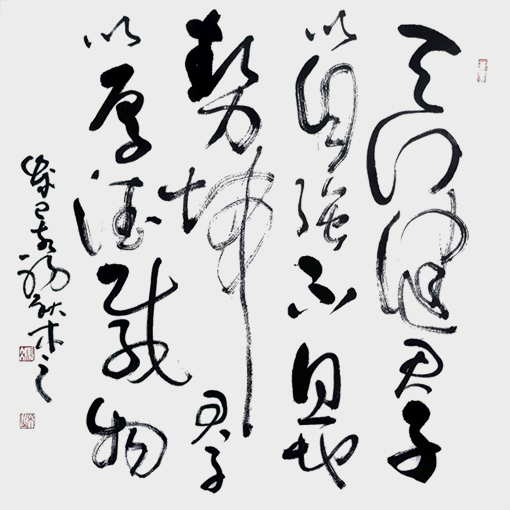 天行健君子
以自強不息地
勢坤君子
以厚德載物
癸巳